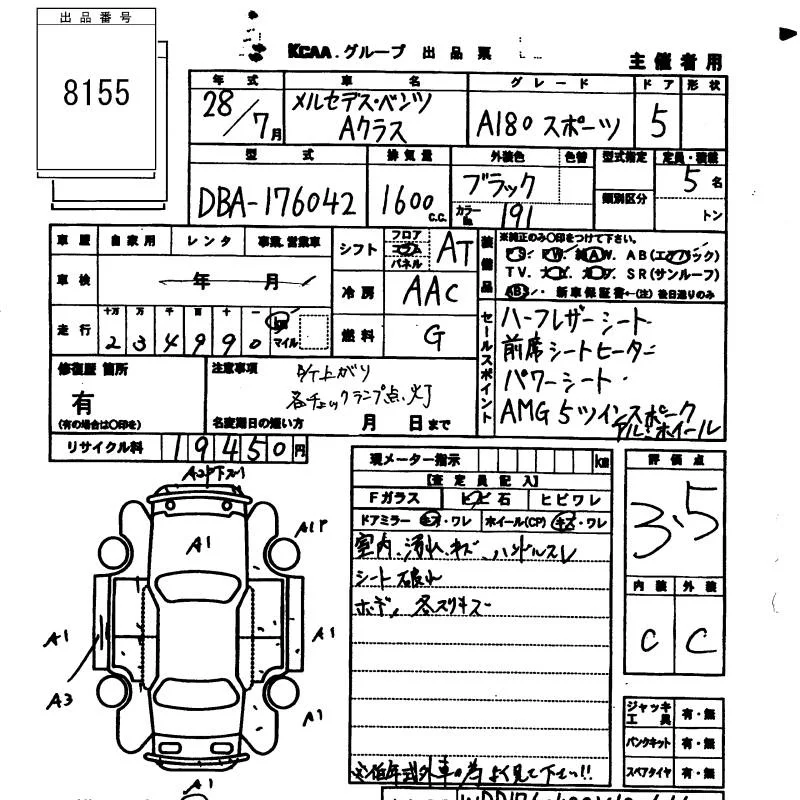 出品番号
8155
KCAA.グループ 出品票
主催者用
年式 車名 グレード ドア 形状
28/7月 メルセデス・ベンツ Aクラス A180 スポーツ 5
型式 排気量 外装色 色替 型式指定 定員・積載
DBA-176042 1600 c.c. ブラック カラーNo. 191 類別区分 5名 トン
車歴 自家用 レンタ 事業.営業車
シフト フロア コラム パネル AT
装備品 ※純正のみ○印をつけて下さい。
PS・PW・AW AB(エアバック)
TV. SR(サンルーフ)
ABS・ 新車保証書←(注)後日送りのみ
車検 年 月
冷房 AAC
走行 十万 万 千 百 十 一
2 3 4 9 9 0 km マイル
燃料 G
セールスポイント
ハーフレザーシート
前席シートヒーター
パワーシート
AMG 5ツインスポーク
アルミホイール
修復歴 箇所
有
(有の場合は○印を)
注意事項
各チェックランプ点灯
名変期日の短い方 月 日まで
リサイクル料 19450円
現メーター指示 km
【査定員記入】
Fガラス ヒビ石 ヒビワレ
ドアミラー キズ・ワレ ホイール(CP) キズ・ワレ
室内、汚れ、キズ、ハンドルスレ
シート破れ
ボデー 各スリキズ
評価点
3.5
内装 外装
C C
A1P
A1
A1
A1
A3
A1
A1
ジャッキ工具 有・無
パンクキット 有・無
スペアタイヤ 有・無
低年式外車の為よく見て下さい!!